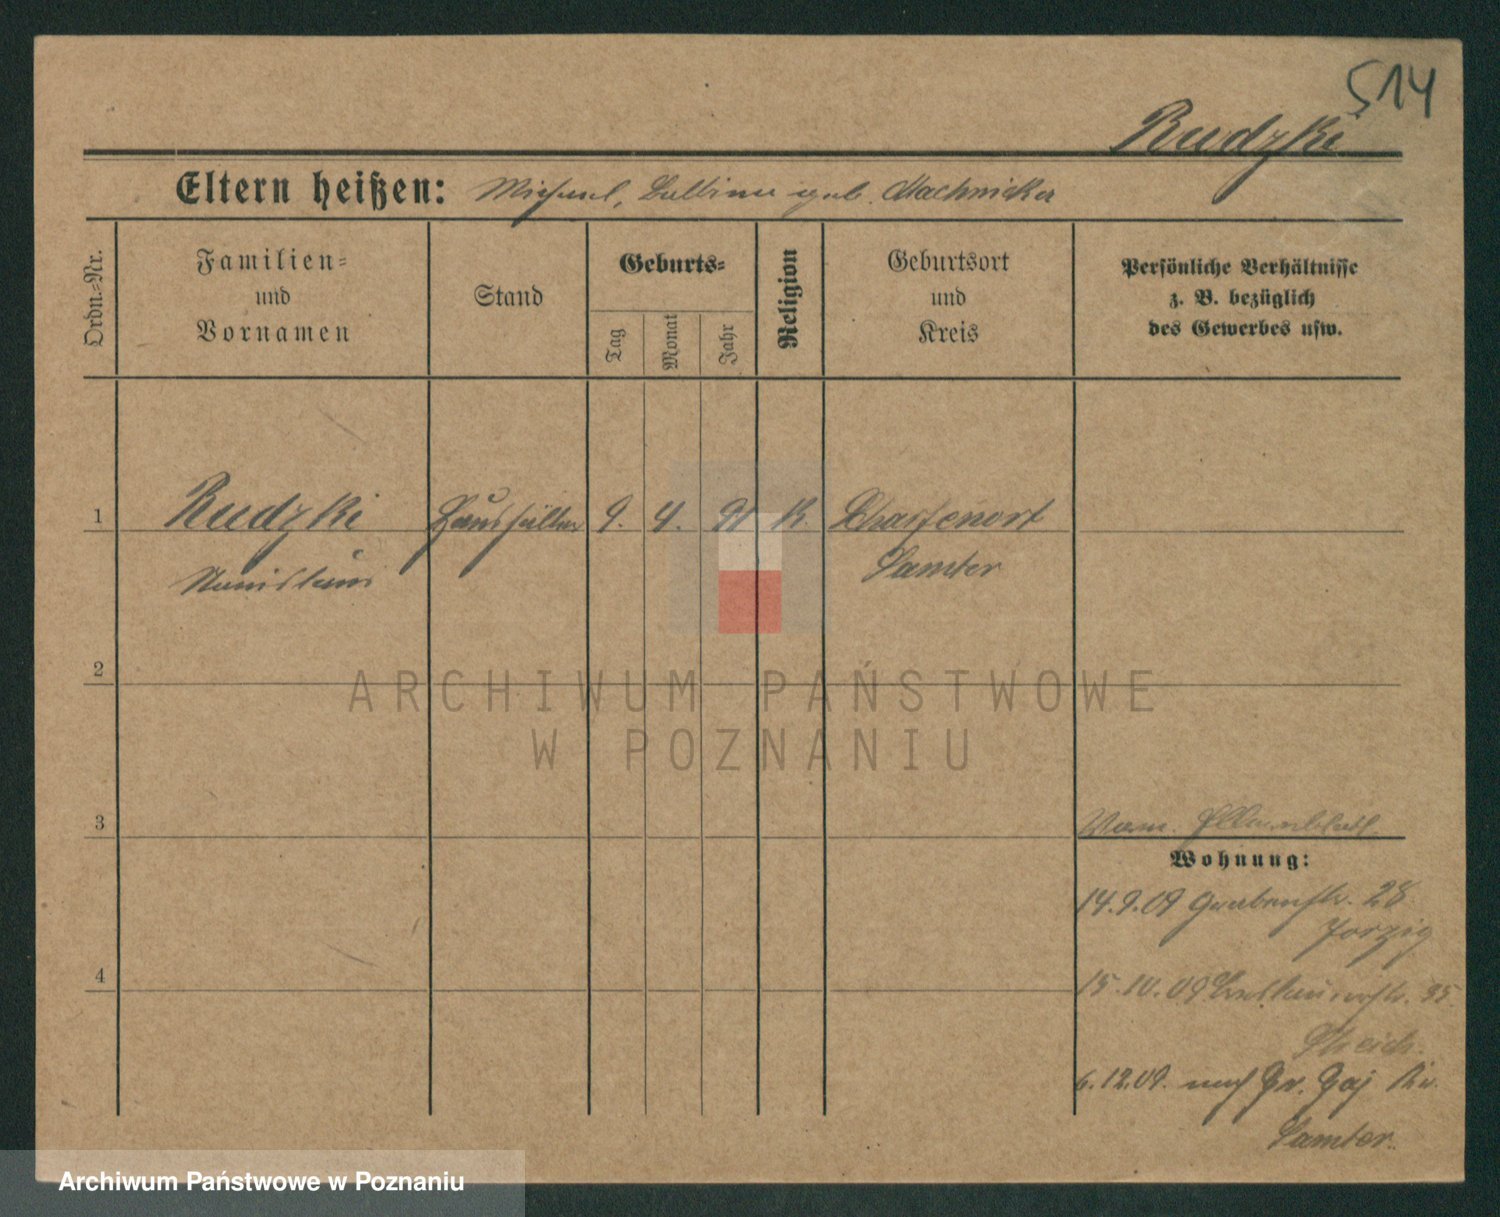 514
Rudzki
Eltern heißen: Michael, geb. Machnicka
Ordn.-Nr.
Familien-
und
Vornamen
Stand
Geburts-
Tag
Monat
Jahr
Religion
Geburtsort
und
Kreis
Persönliche Verhältnisse
z. B. bezüglich
des Gewerbes usw.
1 Rudzki Haushälter 9. 4. 91 K. Scharfenort
Stanislaus Samter
2
ARCHIWUM PAŃSTWOWE
W POZNANIU
3
Wohnung:
14.9.09 Grabenstr. 28
4
15.10.09 35
6.12.09. nach Gr. Gaj Kr.
Samter.
Archiwum Państwowe w Poznaniu